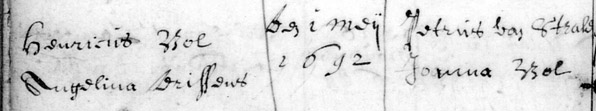 Henricus Vol
Angelina Crissens
den 1 meij
1692
Petrus van Strale
Joanna Vol